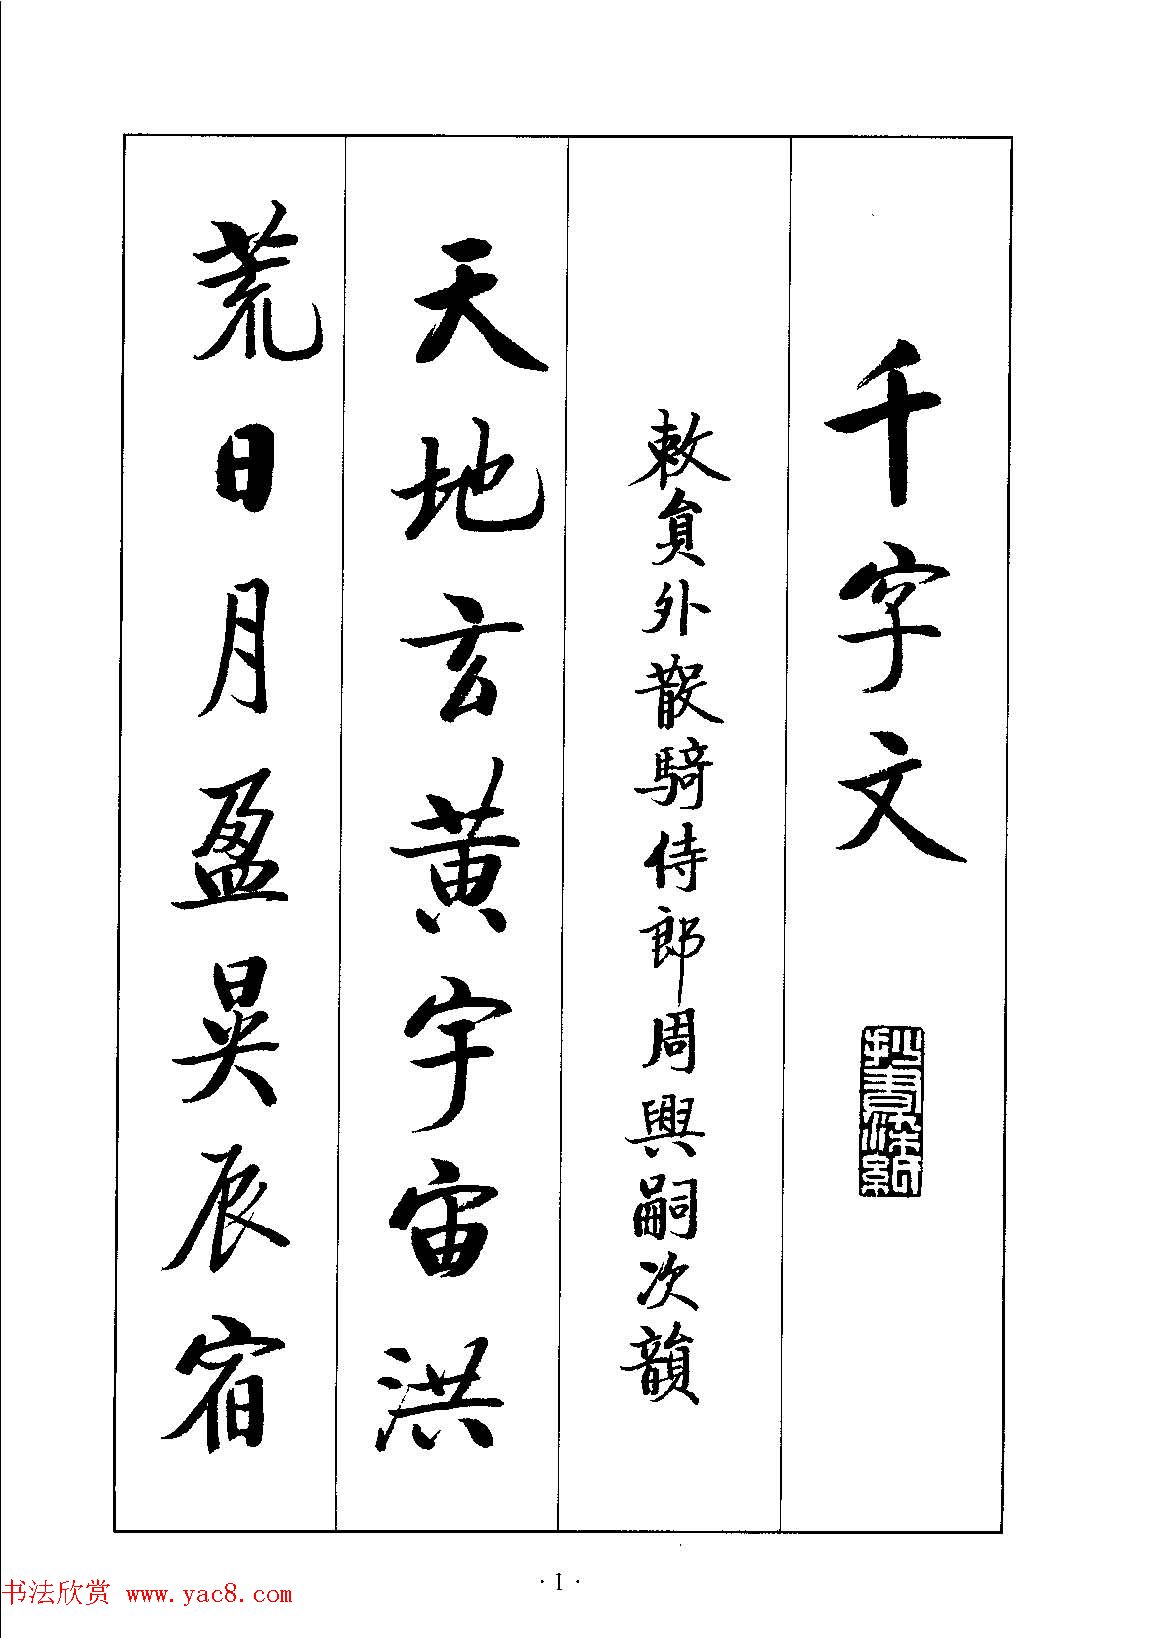 千字文
敕員外散騎侍郎周興嗣次韻
天地玄黄宇宙洪
荒日月盈昃辰宿
· 1 ·
书法欣赏 www.yac8.com